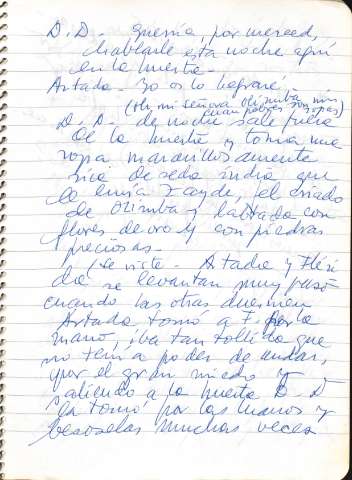 D.D. - Querría, por merced,
hablarle esta noche aquí
en la huerta.-
Artada. Yo os lo lograré.
(Oh mi señora Olimba mis
cuan pobres son ropas)
D.D.- de noche sale fuera
de la huerta y toma una
ropa maravillosamente
rica de seda india que
le envía el criado
de Olimba y labrada con
flores de oro y con piedras
preciosas.-
(se viste - Artada y Fléri
da se levantan muy paso
cuando las otras duermen
Artada, tomó a F. por la
mano, iba tan tollida que
no tenía poder de andar,
por el gran miedo y
saliendo a la huerta D.D.
la tomó por las manos y
besóselas muchas veces